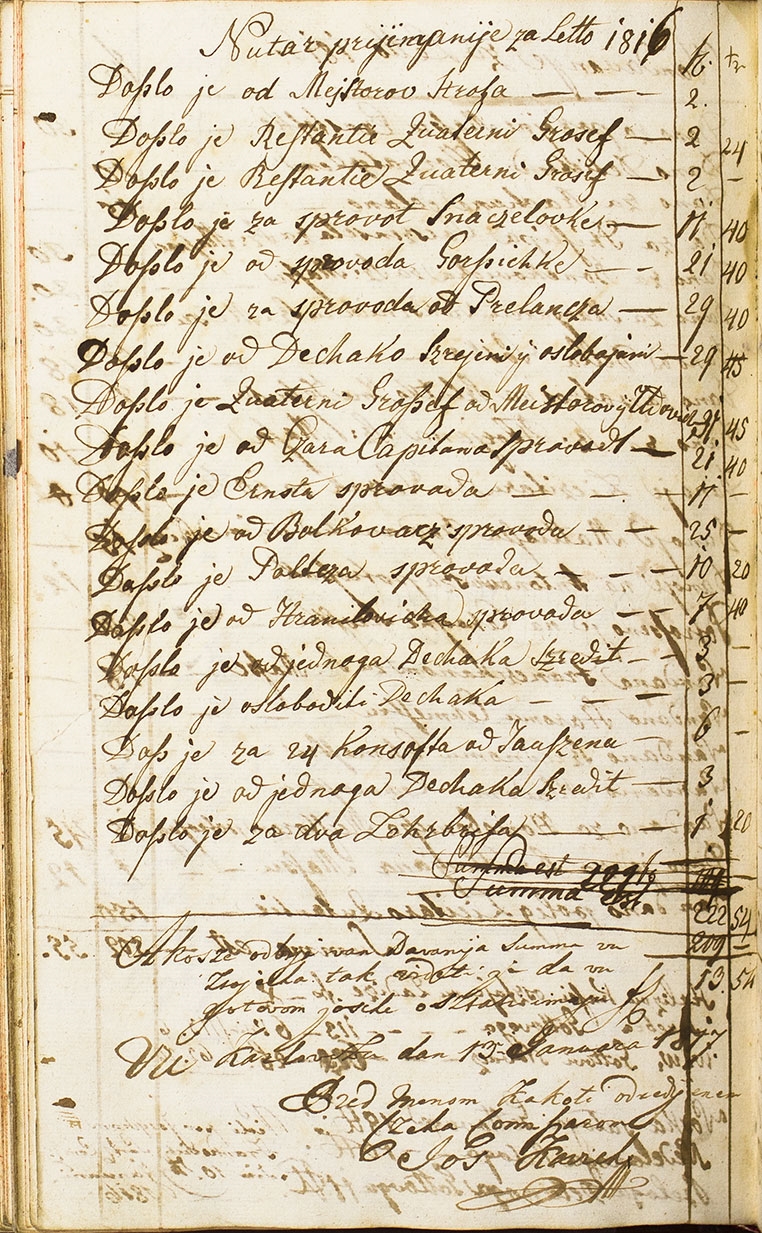 Nutar prijimanije za Letto 1816
f. xr
Doßlo je od Mejstorov Strosa — — — 2.
Doßlo je Restantie Quaterni Grosef — 2 24
Doßlo je Restantie Quaterni Grosef — 2 —
Doßlo je za sprovot Snaczelovke — 17 40
Doßlo je od sprovoda Gorßichke — — 21 40
Doßlo je za sprovoda od Prelancza — 29 40
Doßlo je od Dechako Szrejeni y oslobajani — 29 45
Doßlo je Quaterni Großef od Meistorov y 45
Doßlo je od Czara Capitana Sprovodt — 21 40
Doßlo je Ernsta sprovoda — — — 17 —
Doßlo je od Bolkovacz sprovoda — — 25 —
Doßlo je sprovoda — — — 10 20
Doßlo je od Hranilovicha sprovoda — — 7 40
Doßlo je od jednoga Dechaka Szredit — — 3 —
Doßlo je osloboditi Dechaka — — — 3 —
Doß je za 24 Konsofta od — 6 —
Doßlo je od jednoga Dechaka Szredit — 3
Doßlo je za dva Lehrbrifa — — — 1 20
Summa est 209 f
Summa est
222 54
Akosze odbije van Davanja Summa vu 209 —
tak da vu 13. 54
gotovom josche
Vu Karlovczu dan 13 Januara 1817
Pred Menom Kakoti odredjenem
Czeha Comissarom
Jos